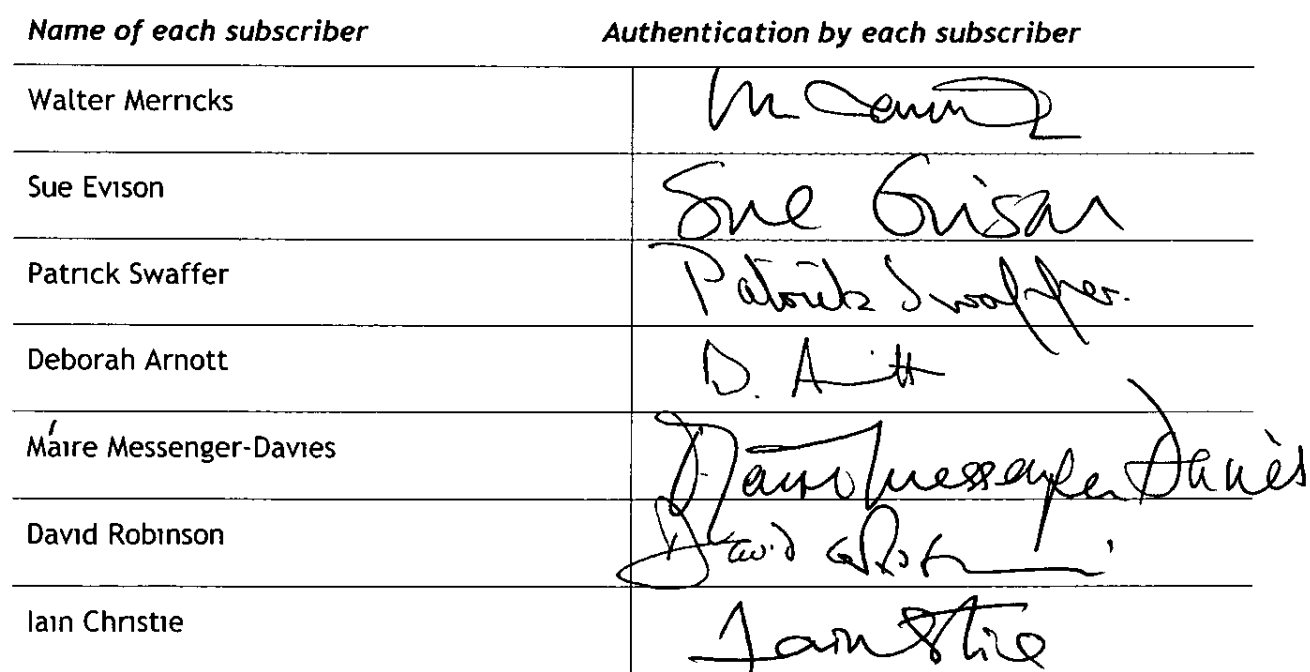 Name of each subscriber Authentication by each subscriber
Walter Merricks
Sue Evison Sue Evison
Patrick Swaffer Patrick Swaffer.
Deborah Arnott D. Arnott
Máire Messenger-Davies Máire Messenger Davies
David Robinson David Robinson
Iain Christie Iain